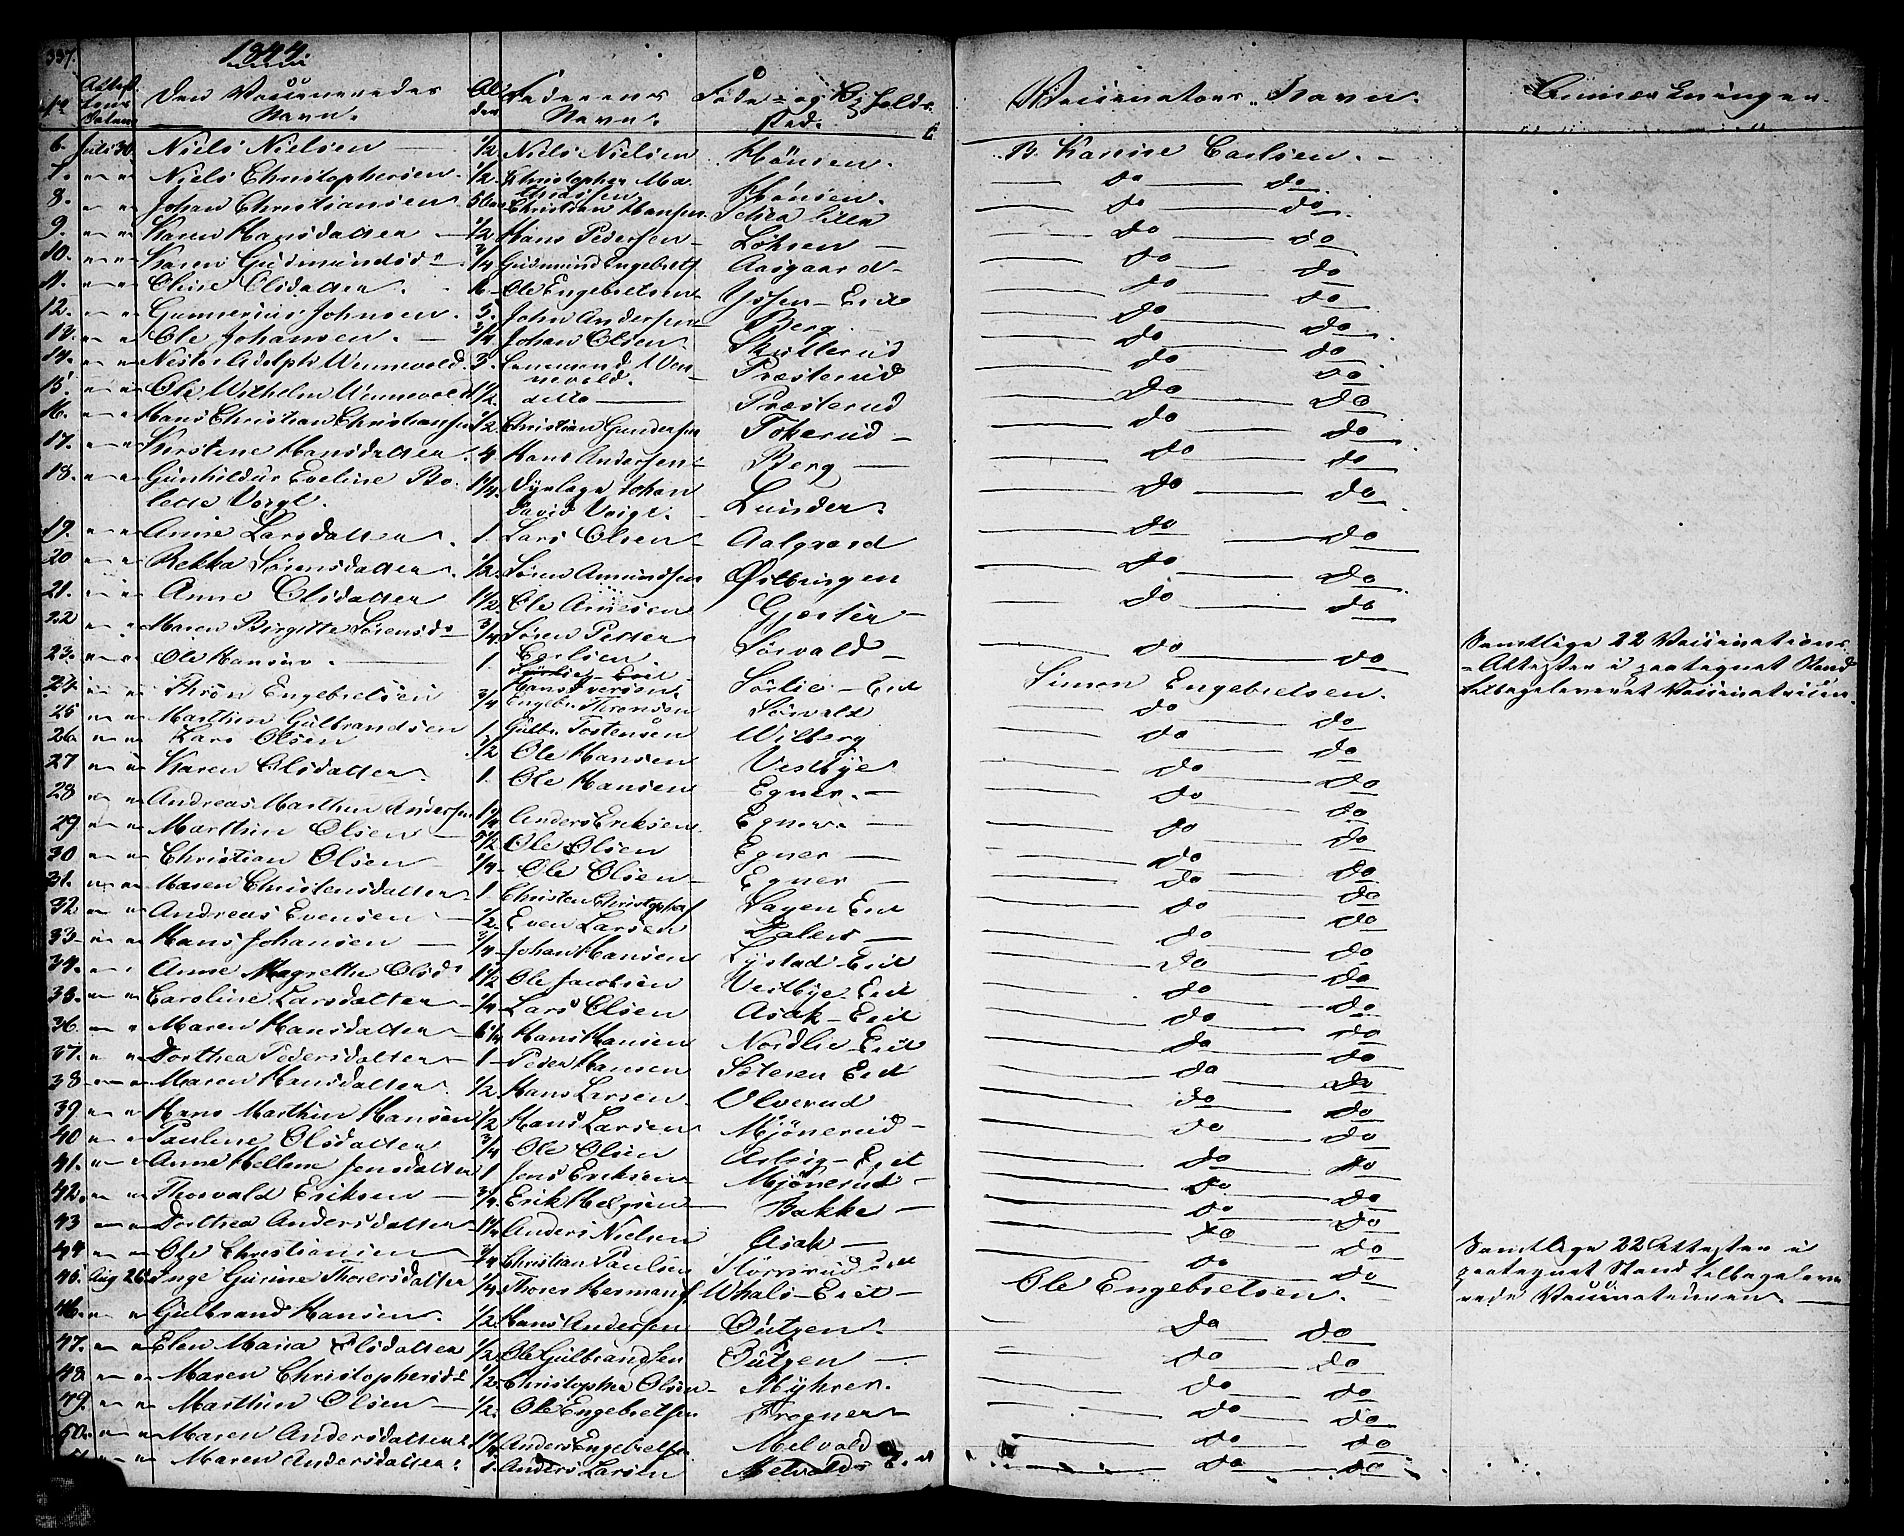 337.
1844.
Attestens Datum
Den Vaccineredes Navn.
Alder
Faderens Navn.
Føde- og Opholdssted.
Vaccinateurs Navn.
Anmærkninger.
6. Juli 30. Niels Nielsen — 1/2 Niels Nielsen Hönsen. B. Karine Carlsen. —
7. " " Niels Christophersen. 1/2. Christopher Mathissen Hönsen. — do — do.
8. " " Johan Christiansen Christian Hansen — do — do.
9. " " Karen Hansdatter — 1/2 Hans Pedersen — Löksen — do — do
10. " " Karen Gudmundsd. 3/4 Gudmund Engebretsen Aasgaard — do — do
11. " " Oline Olsdatter. Ole Engebretsen Eiet — do — do
12. " " Gunnerius Johnsen. 3. John Andersen Berg — do — do
13. " " Ole Johansen. — 3/4 Johan Olsen Skutterud — do — do
14. " " Adolph Wennevold. 3. Wennevold. Præsterud — do — do
15 " " Ole Wilhelm Wennevold 1/2 ditto — Præsterud — do — do
16. " " Hans Christian Christiansen 1/2 Christian Gundersen Tokerud — do — do
17. " " Kirstine Hansdatter 4 Hans Andersen Berg — do — do
18. " " Gunhilda Eveline Bolette Voigt. 1/4 Johan David Voigt. Lunder. — do — do
19. " " Anne Larsdatter. 1. Lars Olsen Aalgaard — do — do
20 " " Rekka Sörensdatter. 1/2. Sören Amundsen Østbyingen — do — do
21. " " Anne Olsdatter 1/2 Ole Arnesen — do — do
22 " " Maren Birgitte Sörensd. 3/4 Sören Petter Carlsen. Sörvald — do — do
Samtlige 22 Vaccinations-Attester i paategnet Stand tilbageleveret Vaccinatricen.
23. " " Ole Hansen. — 1. Hans Iversen Sörlie — Eiet Simon Engebretsen.
24 " " Thron Engebretsen 3/4 Engebr. Thronsen Sörvald — do — do
25 " " Marthin Gulbrandsen 1 Gulbr. Tostensen Wilberg — do — do
26 " " Lars Olsen 1/2 Ole Hansen Vestbye — do — do
27 " " Karen Olsdatter. 1. Ole Hansen Egner. — do — do
28 " " Andreas Marthin Andersen Anders Eriksen. Egner. — do — do
29 " " Marthin Olsen — Ole Olsen Egner — do — do
30 " " Christian Olsen 1/4 Ole Olsen — Egner — do — do
31. " " Maren Christensdatter 1 Christen Christophers. Eiet — do — do
32 " " Andreas Evensen — 1/2. Even Larsen Dalen — do — do
33 " " Hans Johansen — 3/4 Johan Hansen Lystad Eiet — do — do
34. " " Anne Magrethe Olsd. 1/2 Ole Jacobsen Vestbye Eiet — do — do
35. " " Caroline Larsdatter 1/4 Lars Olsen Asak — Eiet — do — do
36. " " Maren Hansdatter Hans Hansen Nordlie Eiet — do — do
37. " " Dorthea Pedersdatter 1 Peder Hansen Eiet — do — do
38 " " Maren Hansdatter 1/2 Hans Larsen Ulverud — do — do
39 " " Hans Marthin Hansen 1/2 Hans Larsen Mjönerud — do — do
40 " " Pauline Olsdatter 3/4 Ole Olsen Eiet — do — do
41. " " Anne Hellene Jensdatter 1 Jens Eriksen Mjönerud — do — do
42. " " Thorvald Eriksen — 3/4 Erik Helgesen Bakke — do — do
43 " " Dorthea Andersdatter 1/4 Anders Nielsen Asak — do — do
44 " " Ole Christiansen 3/4 Christian Paulsen — do — do
Samtlige 22 Attester i paategnet Stand tilbageleverede Vaccinateuren. —
45. Aug 26. Inge Gurine Thoresdatter 1/4 Thores Hermans. Eiet — Ole Engebretsen.
46. " " Gulbrand Hansen. 1/2 Hans Andersen Outgen. — do — do
47. " " Elen Maria Olsdatter 1/2 Ole Gulbrandsen Outgen — do — do
48. " " Maren Christophersd. 1/2 Christopher Olsen Myhrer. — do — do
49. " " Marthin Olsen — 1/2. Ole Engebretsen Frogner — do — do
50. " " Maren Andersdatter 1/4 Anders Engebretsen Melvold — do — do
" " Maren Andersdatter. Anders Larsen Melvold — do — do